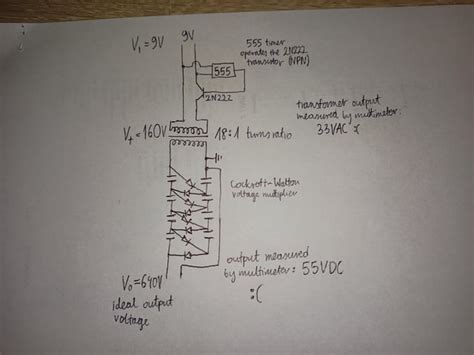 V₁ = 9V
9V
555 timer
operates the 2N222
transistor (NPN)
555
2N222
transformer output
measured by multimeter:
33VAC :(
V₊ = 160V
18:1 turns ratio
Cockroft-Walton
voltage multiplier
output measured
by multimeter: 55VDC
:(
V₀ = 640V
ideal output
voltage